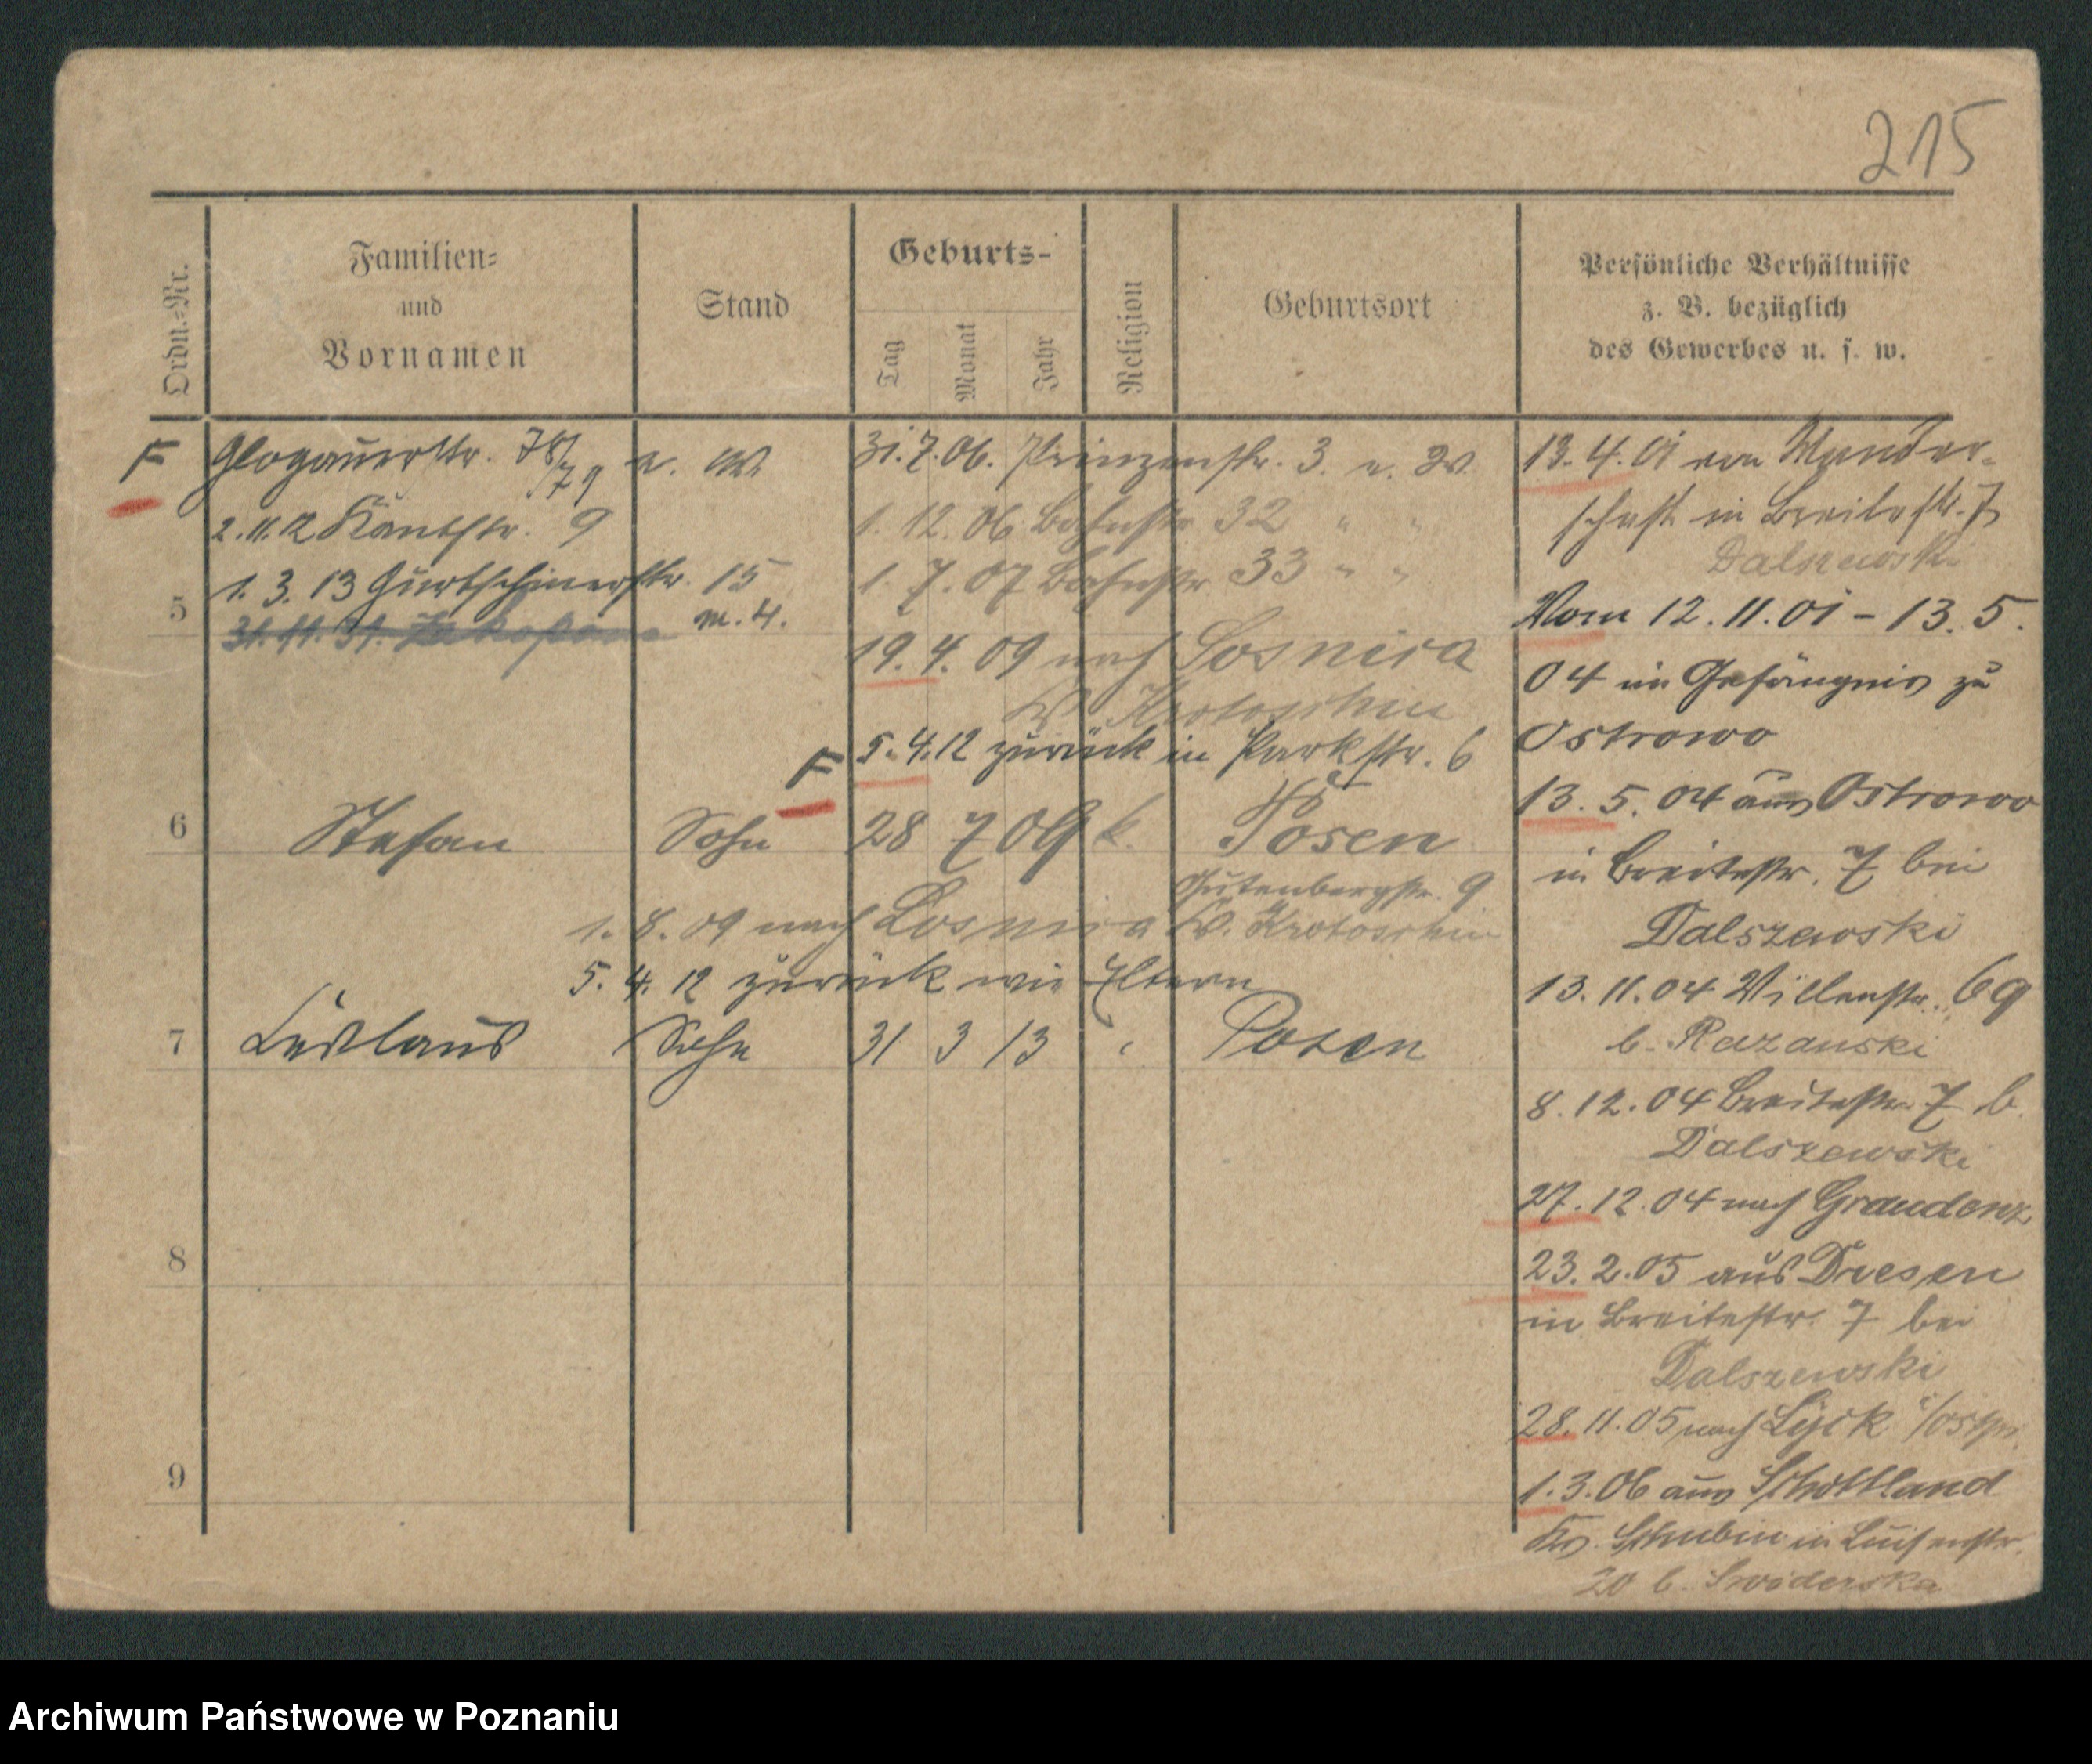 215
Ordn.-Nr.
Familien-
und
Vornamen
Stand
Geburts-
Tag
Monat
Jahr
Religion
Geburtsort
Persönliche Verhältnisse
z. B. bezüglich
des Gewerbes u. s. w.
F Glogauerstr. 78/79 u. W.
2.11.12 Kantstr. 9
1. 3. 13 Gurtschinerstr. 15
m. 4.
5
31. 11. 31.
31.7.06. Prinzenstr. 3. u. W.
1. 12. 06 Bahnstr. 32 " "
1. 7. 07 Bahnstr. 33 " "
19. 4. 09 nach Sosnica
Kr. Krotoschin
F 5.4.12 zurück in Parkstr. 6
6 Stefan Sohn 28 7 09 k. Posen
Gutenbergstr. 9
1. 8. 09 nach Sosnica Kr. Krotoschin
5. 4. 12 zurück wie Eltern
7 Ladislaus Sohn 31 3 13 Posen
8
9
13.4.01 von Wander-
schaft in Breitestr. 7
Dalszewski
Vom 12.11.01 – 13.5.
04 im Gefängnis zu
Ostrowo
13. 5. 04 aus Ostrowo
in Breitestr. 7 bei
Dalszewski
13.11.04 Villenstr. 69
b. Razanski
8.12.04 Breitestr. 7 b.
Dalszewski
27.12.04 nach Graudenz
23.2.05 aus Driesen
in Breitestr. 7 bei
Dalszewski
28.11.05 nach Lyck i/Ostpr.
1.3.06 aus Schottland
Kr. Schubin in Luisenstr.
20 b. Swiderska
Archiwum Państwowe w Poznaniu